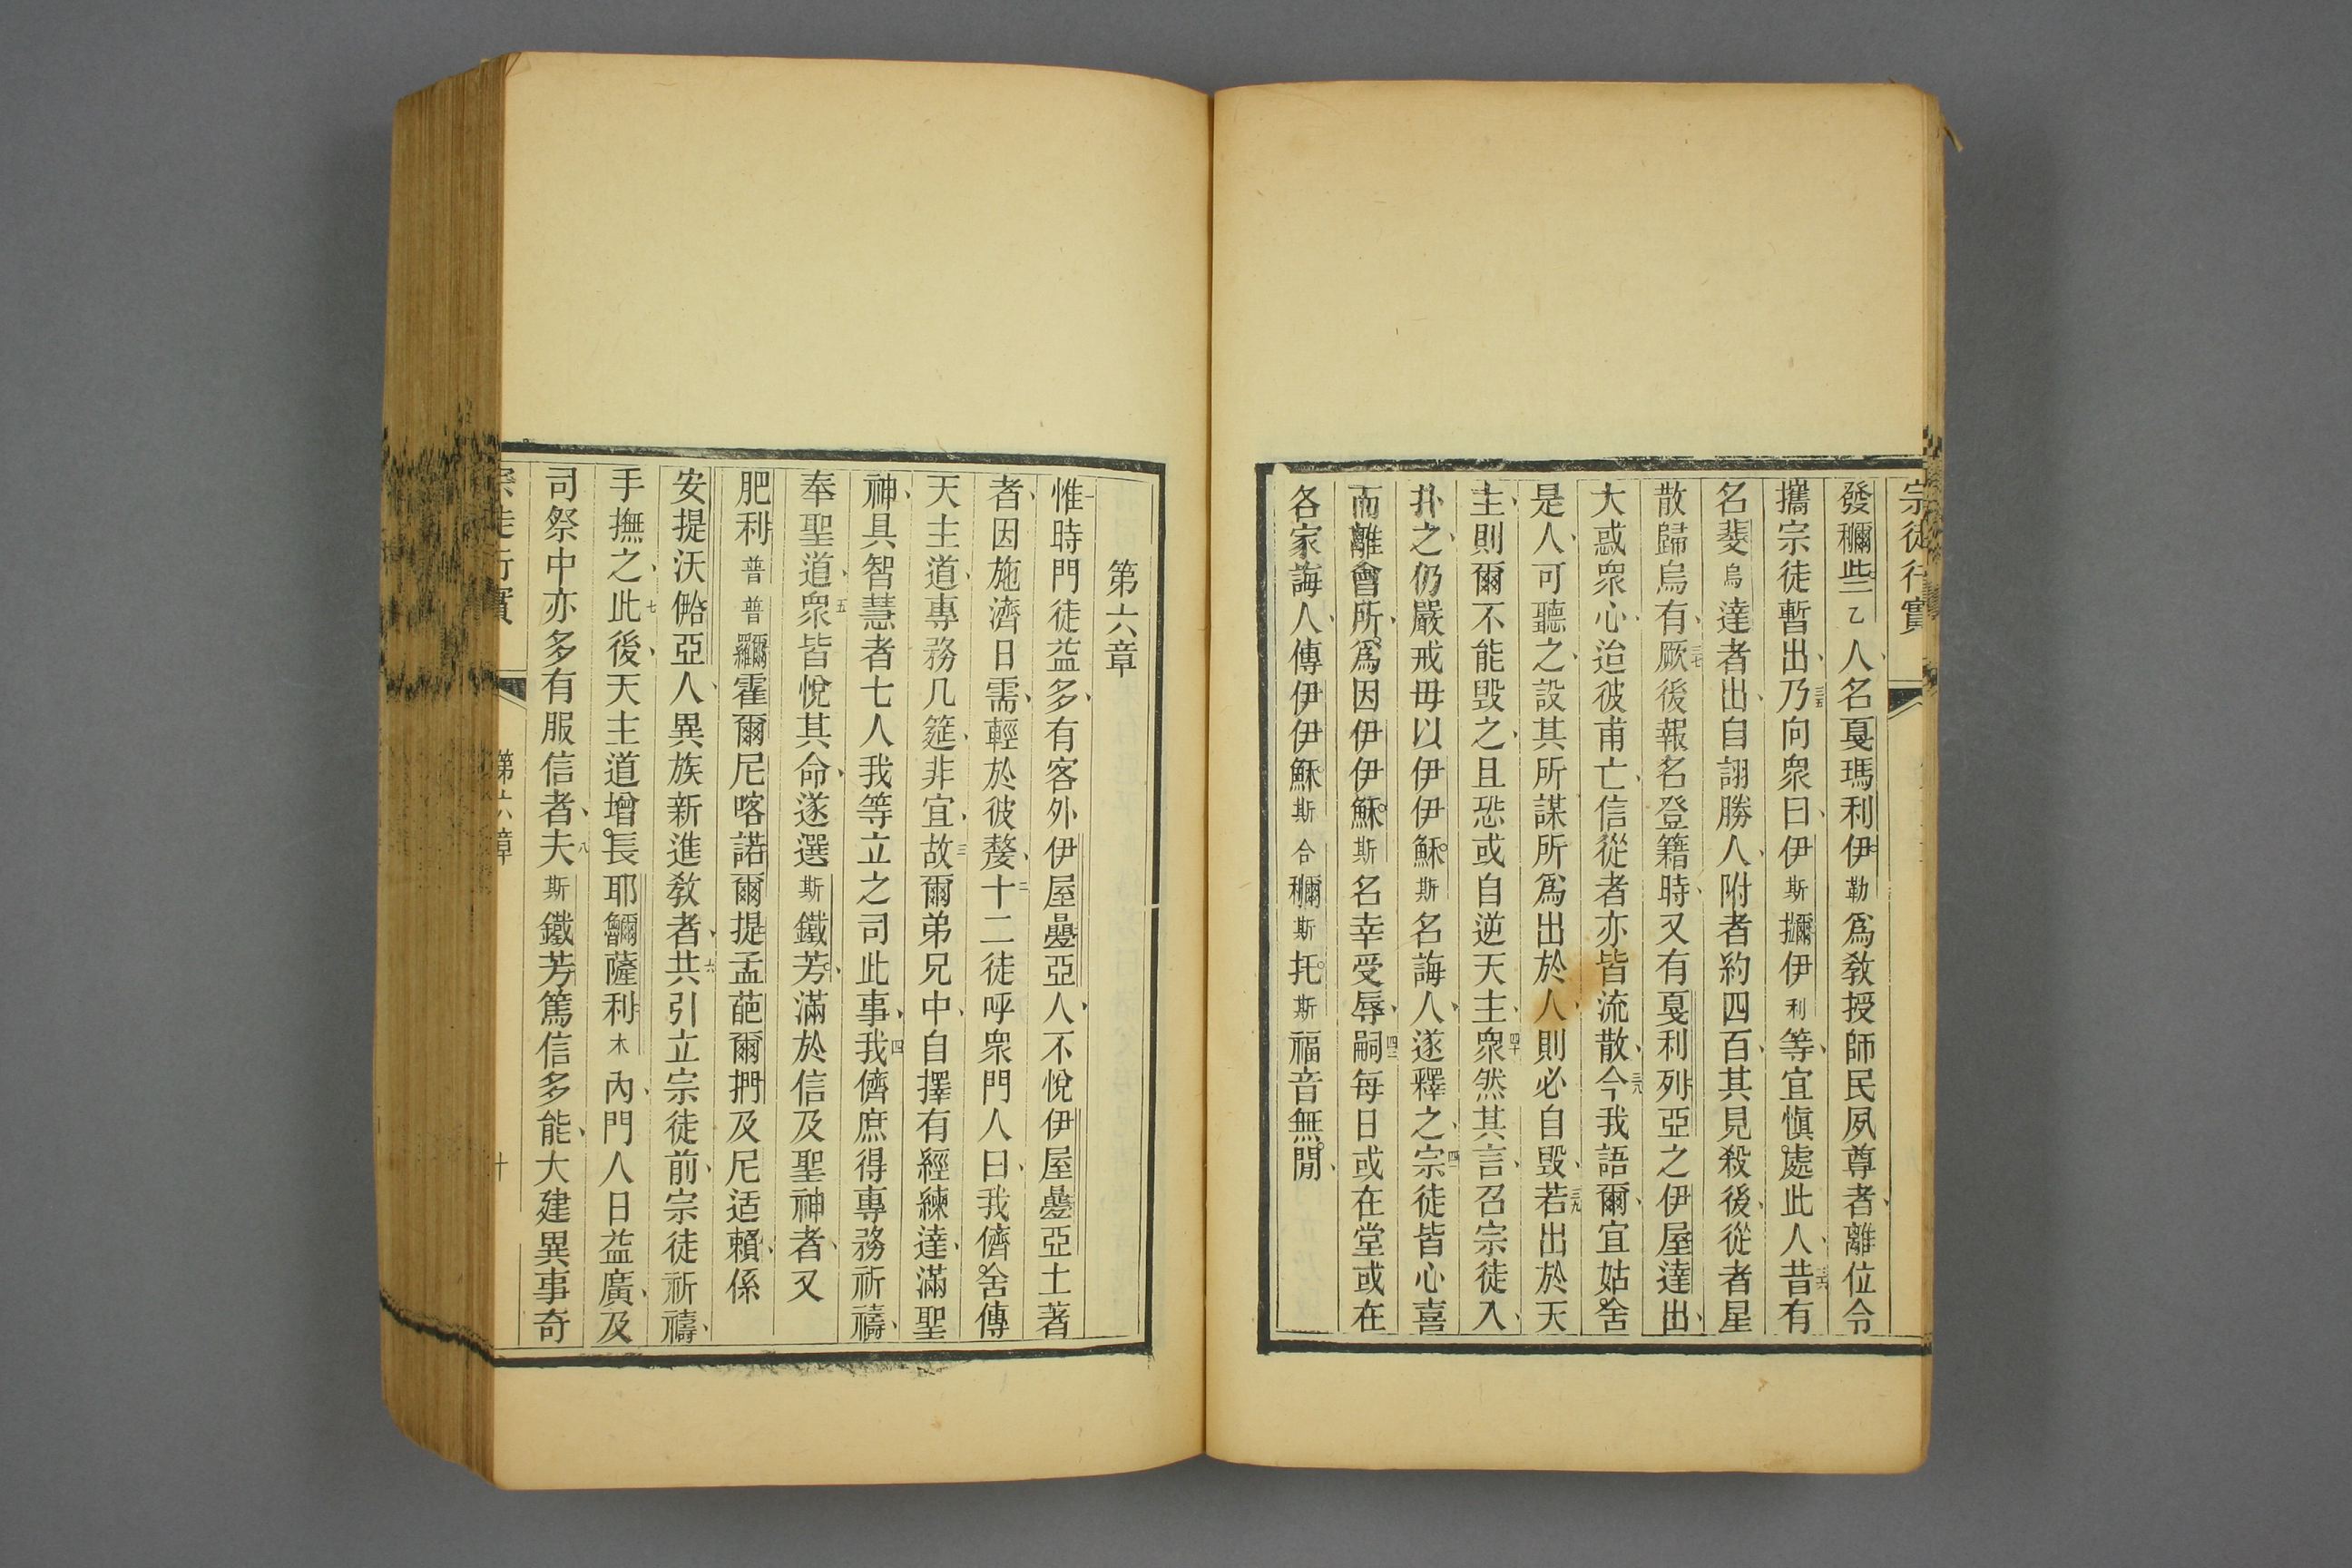 宗徒行實
發穪些乙人名戞瑪利伊勒爲教授師民夙尊者離位令
攜宗徒暫出三五乃向衆曰伊斯伊利等宜愼處此人三六昔有
名斐烏達者出自詡勝人附者約四百其見殺後從者星
散歸烏有三七厥後報名登籍時又有戞利列亞之伊屋達出
大惑衆心迨彼甫亡信從者亦皆流散三八今我語爾宜姑舍
是人可聽之設其所謀所爲出於人則必自毀三九若出於天
主則爾不能毀之且恐或自逆天主四十衆然其言召宗徒入
扑之仍嚴戒毋以伊伊穌斯名誨人遂釋之四一宗徒皆心喜
而離會所爲因伊伊穌斯名幸受辱四二嗣每日或在堂或在
各家誨人傳伊伊穌斯合穪斯托斯福音無閒
第六章
一惟時門徒益多有客外伊屋疊亞人不悅伊屋疊亞土著
者因施濟日需輕於彼嫠二十二徒呼衆門人曰我儕舍傳
天主道專務几筵非宜三故爾弟兄中自擇有經練達滿聖
神具智慧者七人我等立之司此事四我儕庶得專務祈禱
奉聖道五衆皆悅其命遂選斯鐵芳滿於信及聖神者又
肥利普普霍爾尼喀諾爾提孟葩爾捫及尼适賴係
安提沃亞人異族新進教者六共引立宗徒前宗徒祈禱
手撫之七此後天主道增長耶薩利木內門人日益廣及
司祭中亦多有服信者八夫斯鐵芳篤信多能大建異事奇
宗徒行實 第六章 十